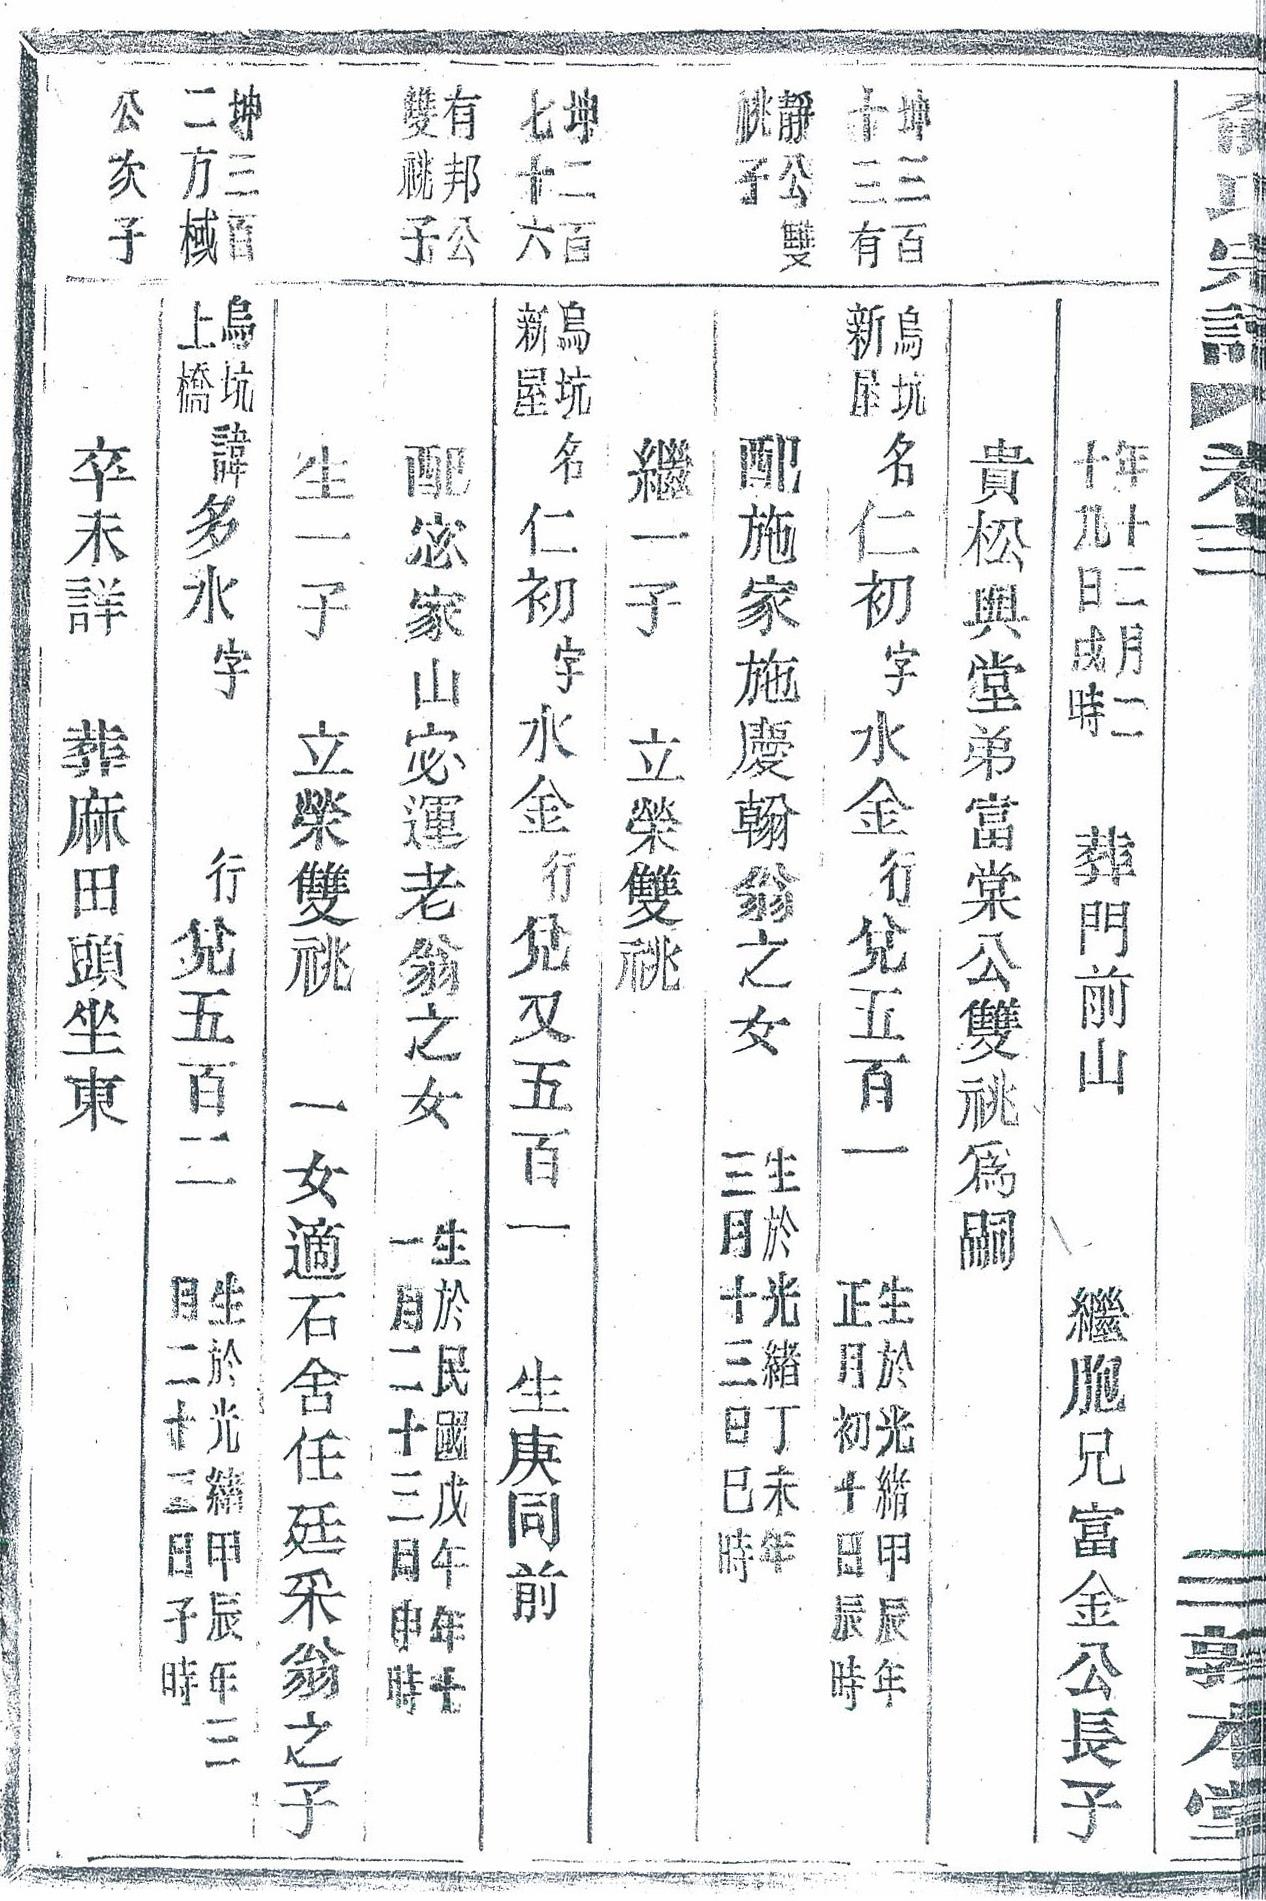 俞氏宗譜 卷二 三 敦本堂
年十二月二
十九日戌時 葬門前山 繼胞兄富金公長子
貴松與堂弟富棠公雙祧為嗣
坤三百
十三有
烏坑
新屋
名仁初字水金行兌五百一
生於光緒甲辰年
正月初十日辰時
靜公雙
祧子
配施家施慶翰翁之女
生於光緒丁未年
三月十三日巳時
繼一子 立榮雙祧
坤二百
七十六
烏坑
新屋
名仁初字水金行兌又五百一 生庚同前
有邦公
雙祧子
配宓家山宓運老翁之女
生於民國戊午年十
一月二十三日申時
生一子 立榮雙祧 一女適石舍任廷采翁之子
坤三百
二方棫
烏坑
上橋
諱多水字 行兌五百二
生於光緒甲辰年三
月二十三日子時
公次子
卒未詳 葬麻田頭坐東